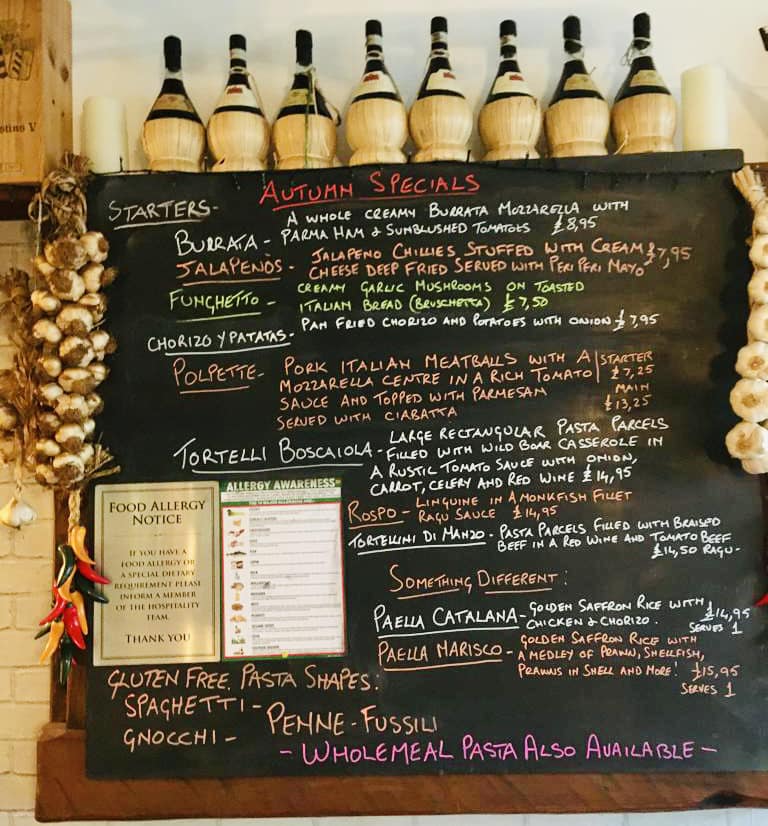 AUTUMN SPECIALS
STARTERS-
BURRATA - A WHOLE CREAMY BURRATA MOZZARELLA WITH
PARMA HAM & SUNBLUSHED TOMATOES £8,95
JALAPENOS - JALAPENO CHILLIES STUFFED WITH CREAM £7,95
CHEESE DEEP FRIED SERVED WITH PERI PERI MAYO
FUNGHETTO - CREAMY GARLIC MUSHROOMS ON TOASTED
ITALIAN BREAD (BRUSCHETTA) £7,50
CHORIZO Y PATATAS - PAN FRIED CHORIZO AND POTATOES WITH ONION £7,95
POLPETTE - PORK ITALIAN MEATBALLS WITH A
MOZZARELLA CENTRE IN A RICH TOMATO
SAUCE AND TOPPED WITH PARMESAM
SERVED WITH CIABATTA
STARTER
£7,25
MAIN
£13,25
TORTELLI BOSCAIOLA - LARGE RECTANGULAR PASTA PARCELS
-FILLED WITH WILD BOAR CASSEROLE IN
A RUSTIC TOMATO SAUCE WITH ONION,
CARROT, CELERY AND RED WINE £14,95
ROSPO - LINGUINE IN A MONKFISH FILLET
RAGU SAUCE £14,95
TORTELLINI DI MANZO - PASTA PARCELS FILLED WITH BRAISED
BEEF IN A RED WINE AND TOMATO BEEF
£14,50 RAGU-
SOMETHING DIFFERENT:
PAELLA CATALANA - GOLDEN SAFFRON RICE WITH £14,95
CHICKEN & CHORIZO. SERVES 1
PAELLA MARISCO - GOLDEN SAFFRON RICE WITH
A MEDLEY OF PRAWN, SHELLFISH,
PRAWNS IN SHELL AND MORE! £15,95
SERVES 1
FOOD ALLERGY
NOTICE
IF YOU HAVE A
FOOD ALLERGY OR
A SPECIAL DIETARY
REQUIREMENT PLEASE
INFORM A MEMBER
OF THE HOSPITALITY
TEAM.
THANK YOU
ALLERGY AWARENESS
GLUTEN FREE. PASTA SHAPES:
SPAGHETTI - PENNE - FUSSILI
GNOCCHI -
- WHOLEMEAL PASTA ALSO AVAILABLE -